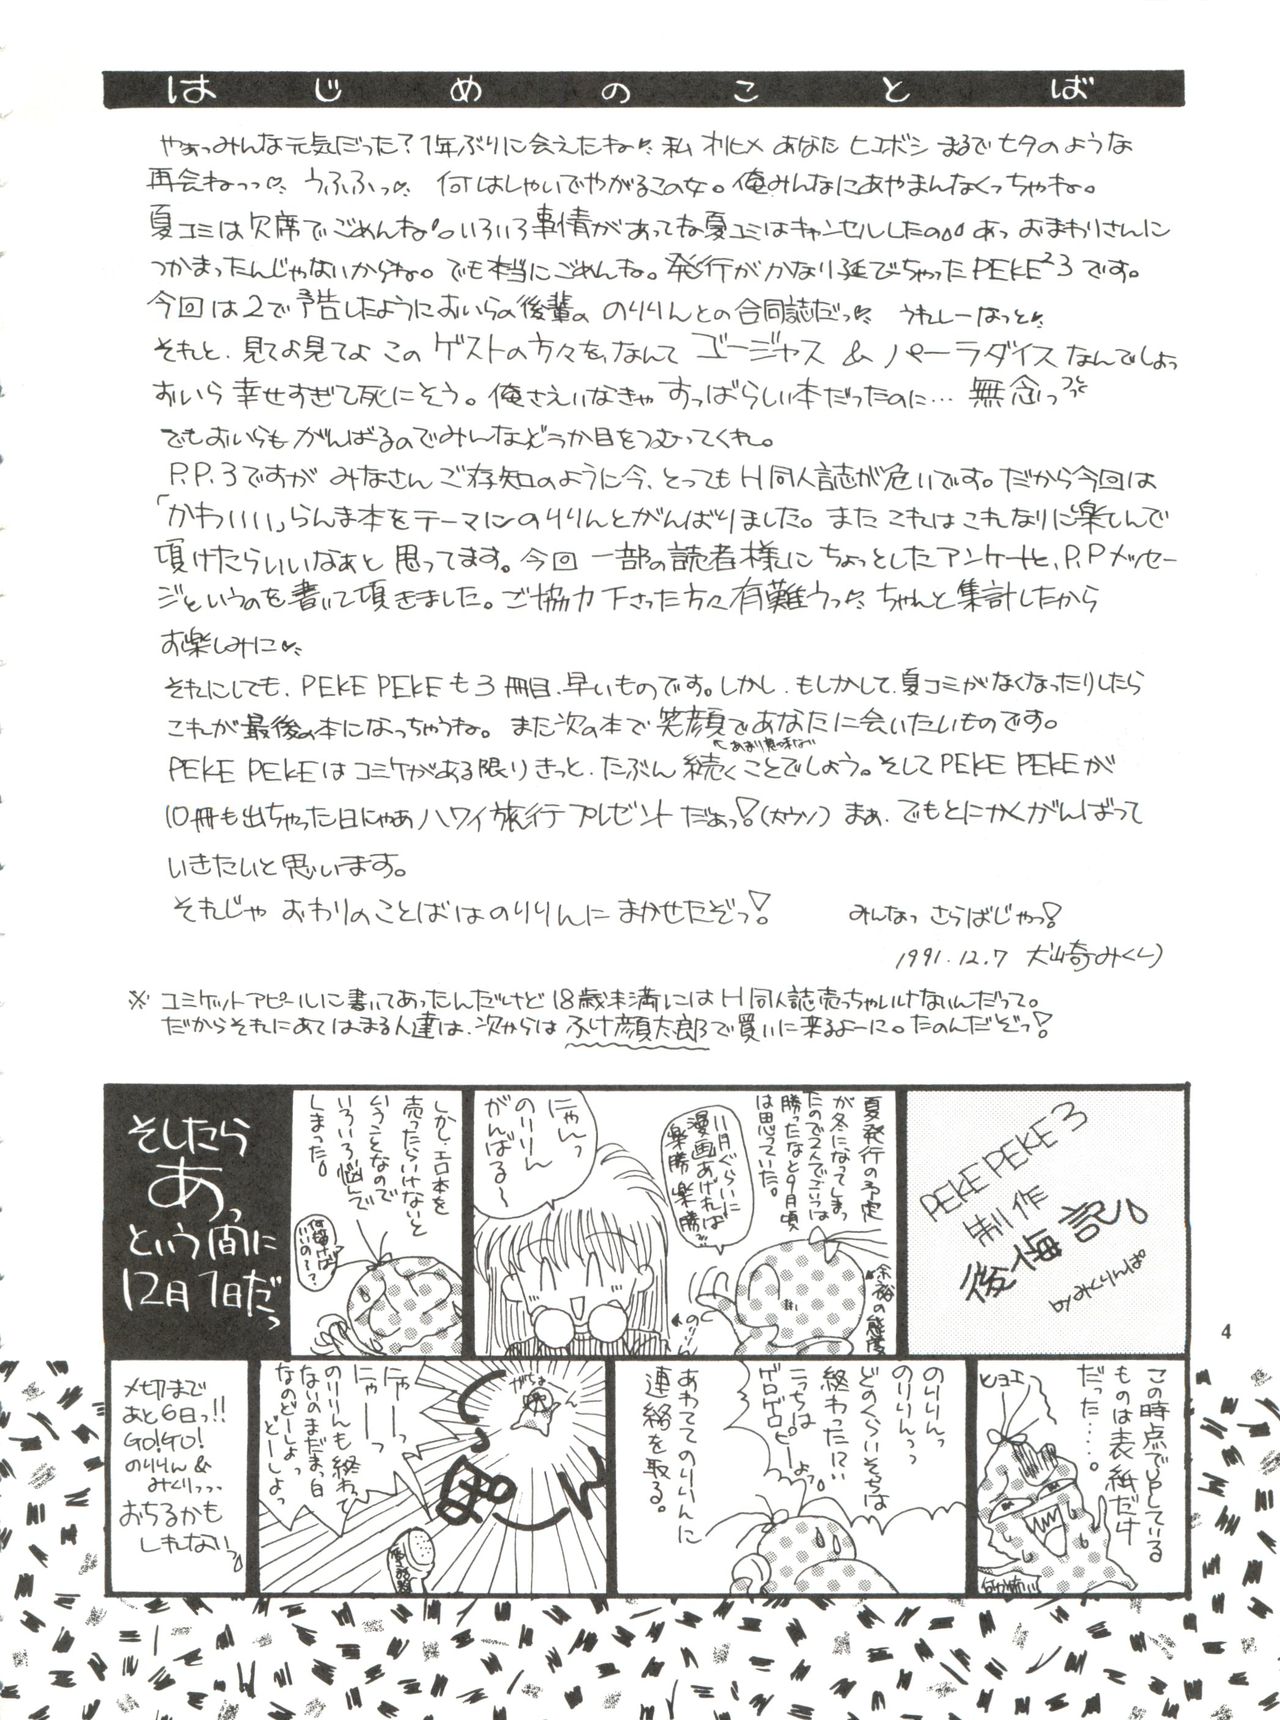 はじめのことば
やぁっみんな元気だった?1年ぶりに会えたね 私 オリヒメ あなた ヒコボシ まるで七夕のような
再会ねっっ うふふっ 何はしゃいでやがるこの女。俺みんなにあやまんなくっちゃね。
夏コミは欠席でごめんね。いろいろ事情があってな夏コミはキャンセルしたの あっ おまわりさんに
つかまったんじゃないからね。でも本当にごめんね。発行がかなり延びちゃったPEKE²3です。
今回は2で予告したようにおいらの後輩の のりりんとの合同誌だっ うれしーなっと
それと、見てよ見てよ このゲストの方々を、なんて ゴージャス & パーラダイスなんでしょっ
おいら幸せすぎて死にそう。俺さえいなきゃすっばらしい本だったのに… 無念っ
でもおいらもがんばるのでみんなどうか目をつむってくれ。
P.P.3ですが みなさん ご存知のように今、とってもH同人誌が危いです。だから今回は
「かわいいい」らんま本をテーマにのりりんとがんばりました。また これはこれなりに楽しんで
頂けたらいいなぁと思ってます。今回 一部の読者様にちょっとしたアンケートと、P.Pメッセー
ジというのを書いて頂きました。ご協力下さった方々有難うっ ちゃんと集計したから
お楽しみに
それにしても、PEKE PEKEも3冊目、早いものです。しかし、もしかして、夏コミがなくなったりしたら
これが最後の本になっちゃうね。また次の本で笑顔であなたに会いたいものです。
←あまり意味ない
PEKE PEKEはコミケがある限りきっと、たぶん 続くことでしょう。そしてPEKE PEKEが
10冊も出ちゃった日にゃあハワイ旅行プレゼントだぁっ!(大ウソ) まぁ、でもとにかくがんばって
いきたいと思います。
それじゃ おわりのことばはのりりんに まかせたぞっ! みんなっ さらばじゃっ!
1991.12.7 犬崎みくり
※ コミケットアピールに書いてあったんだけど18歳未満にはH同人誌売っちゃいけないんだって。
だからそれにあてはまる人達は、次からはふけ顔太郎で買いに来るよーに。たのんだぞっ!
PEKE PEKE 3
制作
後悔記
byみくりんぱ
夏発行の予定
が冬になってしまっ
たので2人でこいつは
勝ったなと9月頃
は思っていた。
余裕の態度
11月ぐらいに
漫画あげれば
楽勝楽勝
にゃんっ
のりりん
がんばる〜
のりりん
しかし、エロ本を
売ったらいけないと
いうことなので
いろいろ悩んで
しまった。
何描けば
いいの〜?
そしたら
あっ
という間に
12月1日だっ
この時点でUPしている
ものは表紙だけ
だった……。
ヒョエ
のりりんっ
のりりんっ
どのくらいそちらは
終わったにい
こっちは
ゲロゲロピーよっ
あわててのりりんに
連絡を取る。
がちょ
にゃーっ
にゃーっ
のりりんも終わって
ないのまだまっ白
なのどーしよっ
どーしよっ
受話器
〆切まで
あと6日っ!!
GO!GO!
のりりん&
みくりっっ
おちるかも
しれないっ
4